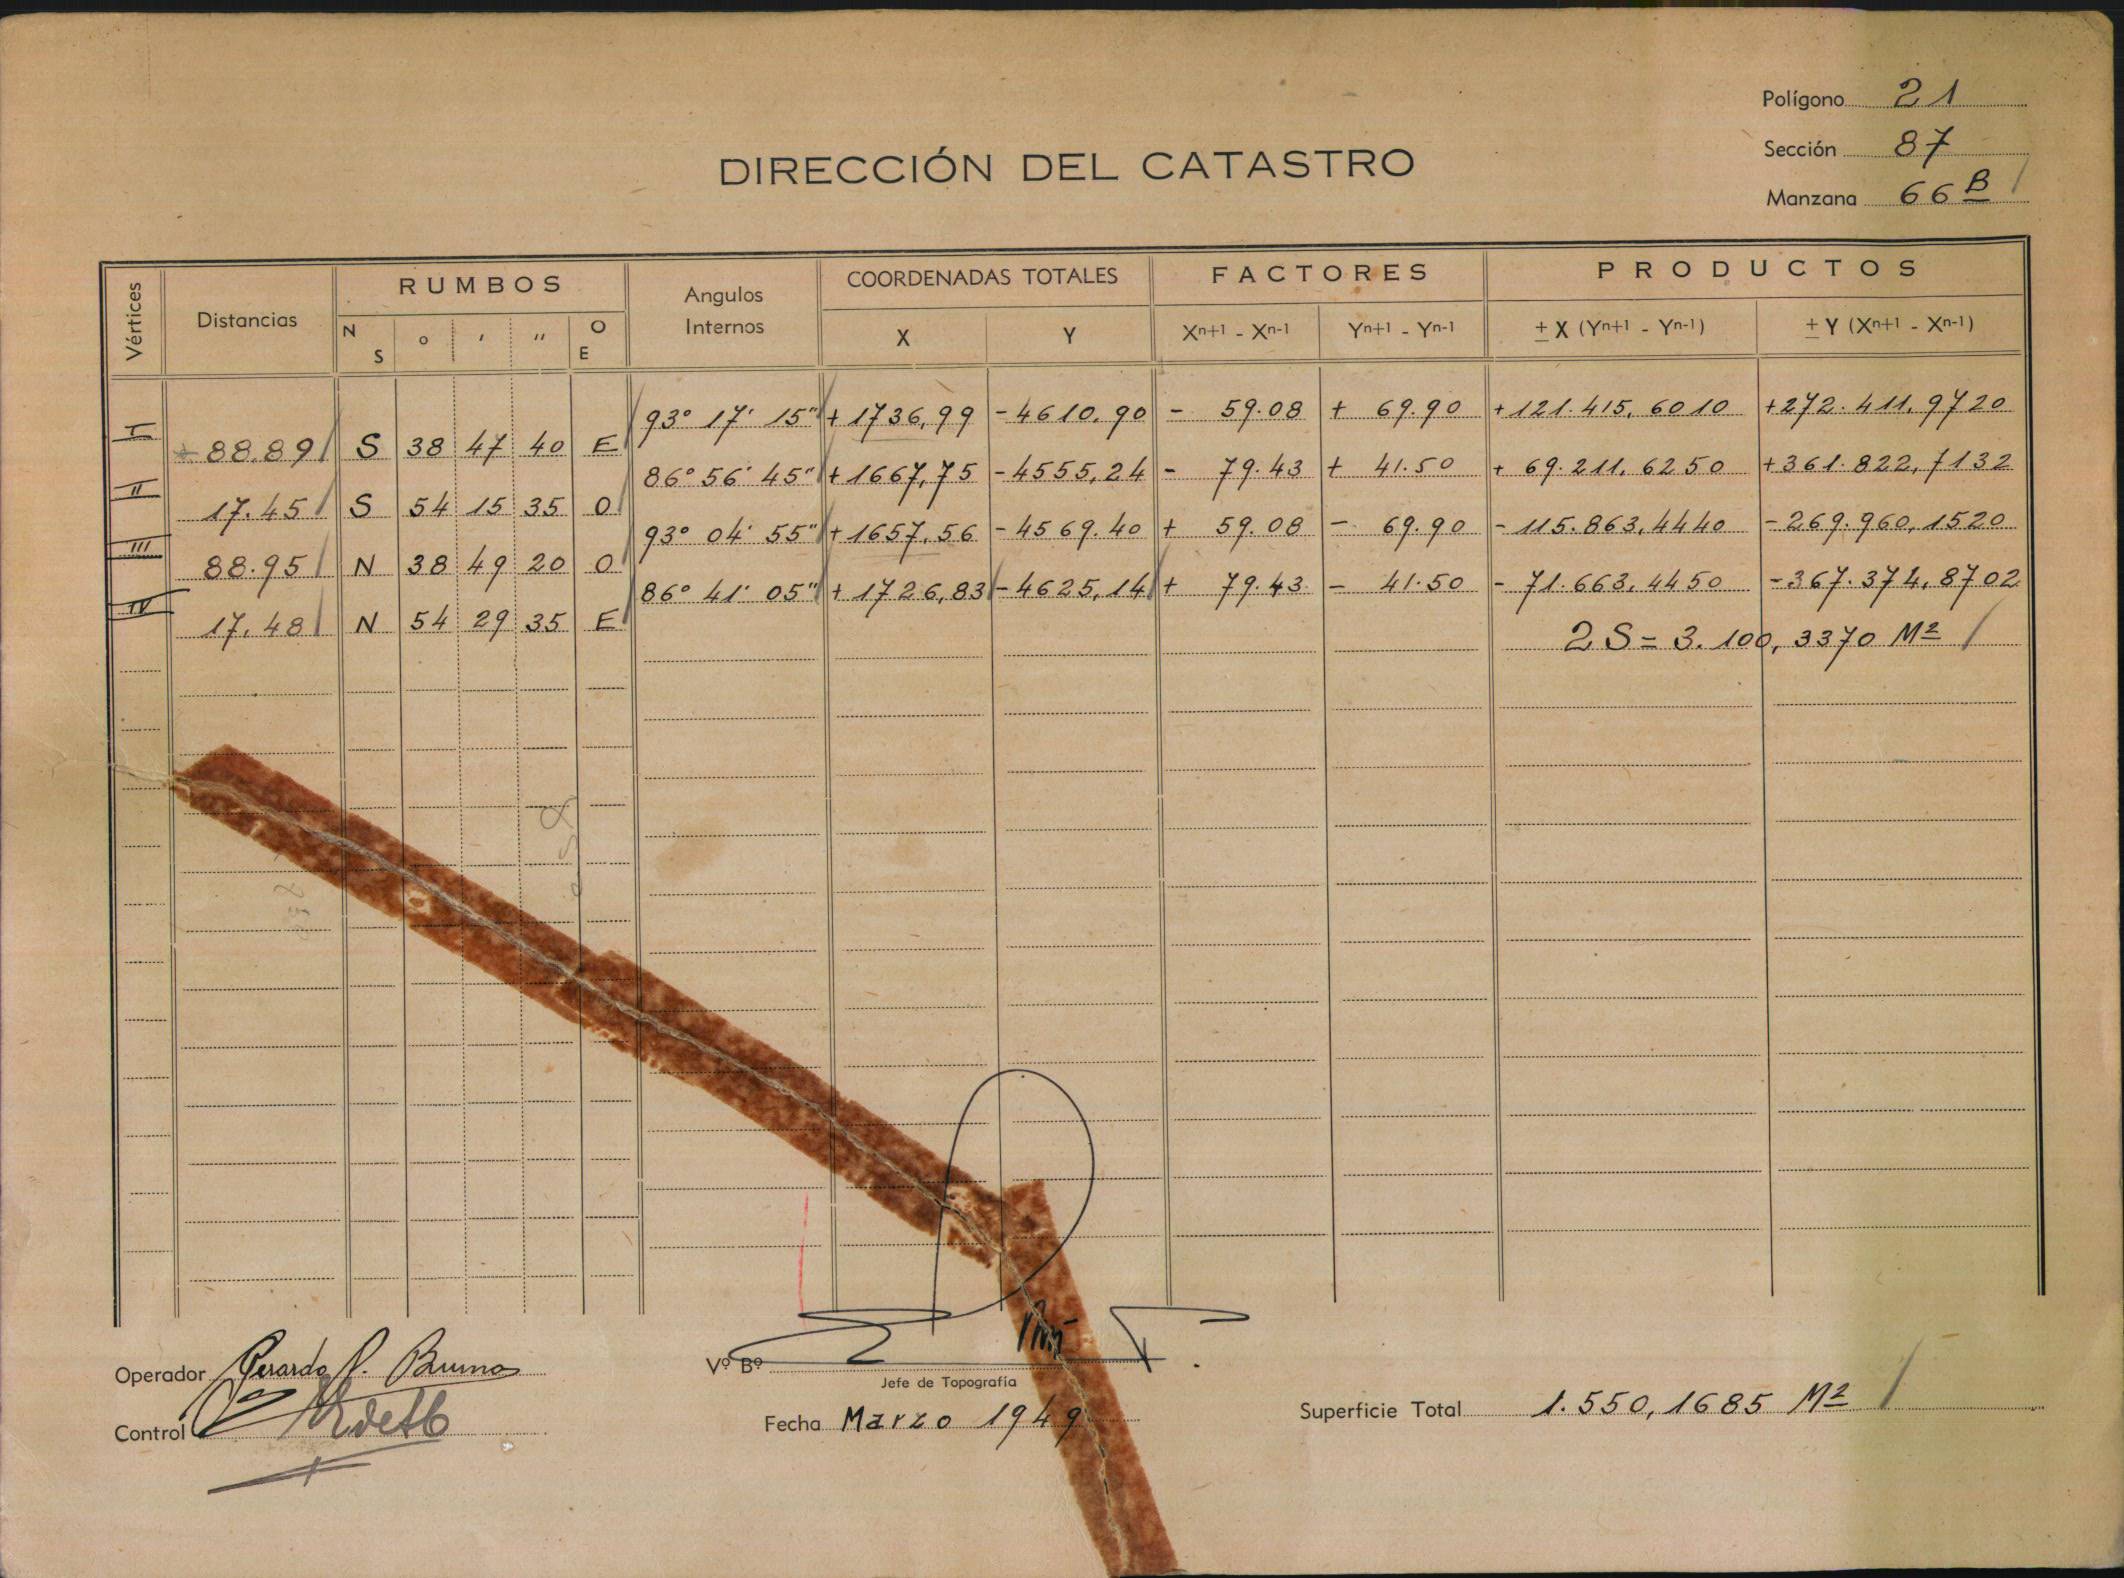 Polígono 21
Sección 87
Manzana 66 B
DIRECCIÓN DEL CATASTRO
Vértices Distancias RUMBOS Angulos Internos COORDENADAS TOTALES FACTORES PRODUCTOS
N S ° ' '' O E X Y Xn+1 - Xn-1 Yn+1 - Yn-1 ± X (Yn+1 - Yn-1) ± Y (Xn+1 - Xn-1)
93° 17' 15" +1736,99 -4610.90 - 59.08 + 69.90 +121.415,6010 +272.411,9720
I 88.89 S 38 47 40 E
86° 56' 45" +1667,75 -4555,24 - 79.43 + 41.50 + 69.211,6250 +361.822,7132
II 17.45 S 54 15 35 O
93° 04' 55" +1657,56 -4569.40 + 59.08 - 69.90 -115.863,4440 -269.960,1520
III 88.95 N 38 49 20 O
86° 41' 05" +1726,83 -4625,14 + 79.43 - 41.50 -71.663,4450 -367.374,8702
IV 17.48 N 54 29 35 E
2S = 3.100,3370 M2
Operador Gerardo
Vº Bº
Jefe de Topografía
Control
Fecha Marzo 1949
Superficie Total 1.550,1685 M2